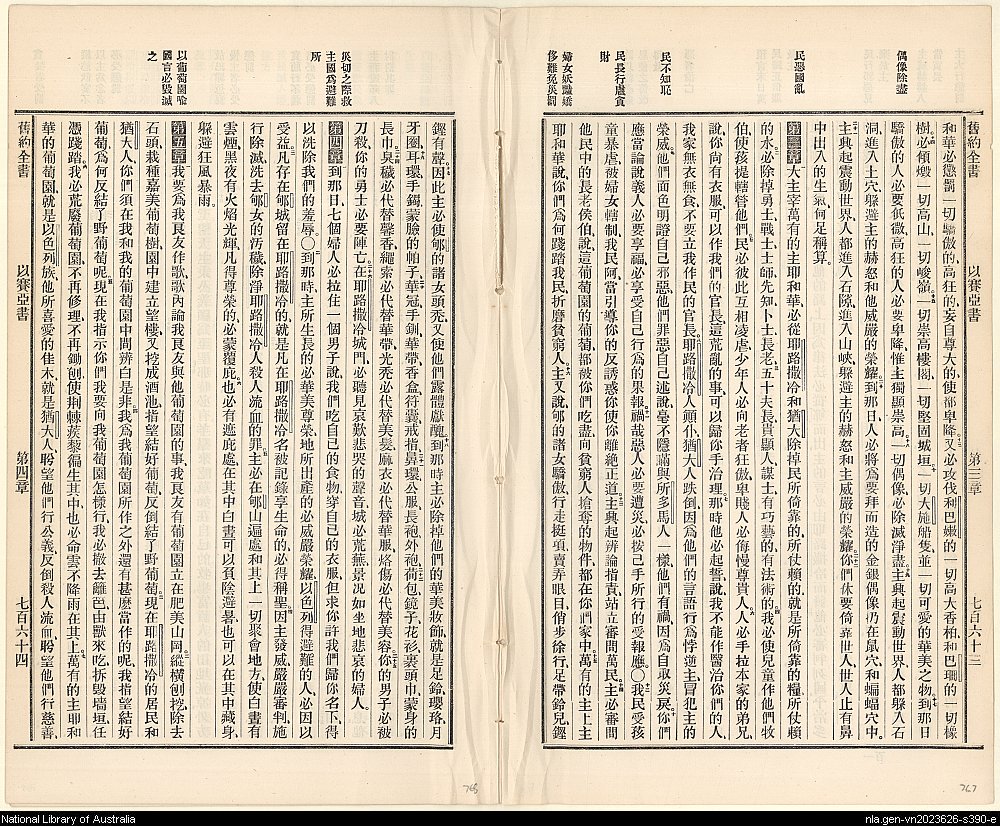 舊約全書 以賽亞書 第三章 七百六十三
偶像除盡
民惡國亂
民不知恥
民長行虐貪
財
婦女妖豔嬌
侈難免災罰
和華必懲罰一切驕傲的、高狂的、妄自尊大的、使都卑降、又必攻伐利巴嫩的一切高大香柏、和巴珊的一切橡
樹、必傾燬一切高山、一切峻嶺、一切崇高樓閣、一切堅固城垣、一切大施船隻、並一切可愛的華美之物、到那日
驕傲的人必要低微、高狂的人必要卑降、惟主獨顯崇高、一切偶像必除滅淨盡、主興起震動世界、人都躲入石
洞、進入土穴、躲避主的赫怒、和他威嚴的榮耀、到那日人必將為要拜而造的金銀偶像、仍在鼠穴和蝙蝠穴中、
主興起震動世界、人都進入石隙、進入山峽、躲避主的赫怒、和主威嚴的榮耀、你們休要倚靠世人、世人止有鼻
中出入的生氣、何足稱算。
第三章 大主宰萬有的主耶和華、必從耶路撒冷和猶大除掉民所倚靠的、所仗賴的、就是所倚靠的糧、所仗賴
的水、必除掉勇士、戰士、士師、先知、卜士、長老、五十夫長、貴顯人、謀士、有巧藝的、有法術的、我必使兒童作他們牧
伯、使孩提轄管他們、民必彼此互相凌虐、少年人必向老者狂傲、卑賤人必侮慢尊貴人、人必手拉本家的弟兄、
說、你尚有衣服、可以作我們的官長、這荒亂的事、可以歸你手治理、那時他必起誓說、我不能作醫治你們的、
我家無衣無食、不要立我作民的官長、耶路撒冷人顛仆、猶大人跌倒、因為他們的言語行為悖逆主、冒犯主的
榮威、他們面色明證自己邪惡、他們罪惡自己述說、毫不隱瞞、與所多馬人一樣、他們有禍、因為自取災戾、你們
應當論說義人必要享福、必享受自己行為的果報、禍哉惡人必要遭災、必按己手所行的受報應、〇我民受孩
童暴虐、被婦女轄制、我民阿、當引導你的反誘惑你、使你離絕正道、主興起辨論指責、站立審問萬民、主必審問
他民中的長老侯伯、說、這葡萄園的葡萄都被你們吃盡、向貧窮人搶奪的物件、都在你們家中、萬有的主上主
耶和華說、你們為何踐踏我民、折磨貧窮人、主又說、郇的諸女驕傲、行走挺項、賣弄眼目、俏步徐行、足帶鈴兒、鏗
災切之際救
主國為避難
所
以葡萄園喩
國言必毀滅
之
鏗有聲、因此主必使郇的諸女頭禿、又使他們露體獻醜、到那時主必除掉他們的華美妝飾、就是足鈴、瓔珞、月
牙圈、耳環、手鐲、蒙臉的帕子、華冠、手釧、華帶、香盒、符囊、戒指、鼻環、公服、長袍、外袍、荷包、鏡子、花衫、裹頭巾、蒙身的
長巾、臭穢必代替馨香、繩索必代替華帶、光禿必代替美髮、麻衣必代替華服、烙傷必代替美容、你的男子必被
刀殺、你的勇士必要陣亡、在耶路撒冷城門、必聽見哀歎悲哭的聲音、城必荒蕪、景况如坐地悲哀的婦人。
第四章 到那日七個婦人必拉住一個男子、說、我們吃自己的食物、穿自己的衣服、但求你許我們歸你名下、得
以洗除我們的羞辱、〇到那時主所生長的必華美尊榮、地所出產的必威嚴榮耀、以色列得避難的人、必因以
受益、凡存在郇城、留在耶路撒冷的、就是凡在耶路撒冷名被記錄享生命的、必得稱聖、因主發威嚴嚴審判、施
行除滅、洗去郇女的汚穢、除淨耶路撒冷人殺人流血的罪、主必在郇山遍處、和其上一切聚會地方、使白晝有
雲煙、黑夜有火焰光輝、凡得尊榮的必蒙覆庇、也必有遮庇處在其中、白晝可以負陰避暑、也可以在其中藏身、
躲避狂風暴雨。
第五章 我要為我良友作歌、歌內論我良友與他葡萄園的事、我良友有葡萄園、立在肥美山岡、縱橫刨挖、除去
石頭、栽種嘉美葡萄樹、園中建立望樓、又挖成酒池、指望結好葡萄、反倒結了野葡萄、現在耶路撒冷的居民、和
猶大人、你們須在我和我的葡萄園中間辨白是非、我為我葡萄園所作之外、還有甚麼當作的呢、我指望結好
葡萄、為何反結了野葡萄呢、現在我指示你們、我要向我葡萄園怎樣行、我必撤去籬笆、由獸來吃、拆毀墻垣、任
憑踐踏、我必荒廢葡萄園、不再修理、不再鋤刨、使荊棘蒺藜徧生其中、也必命雲不降雨在其上、萬有的主耶和
華的葡萄園、就是以色列族、他所喜愛的佳木、就是猶大人、聆望他們行公義、反倒殺人流血、聆望他們行慈善、
舊約全書 以賽亞書 第四章 七百六十四
768
767
National Library of Australia
nla.gen-vn2023626-s390-e